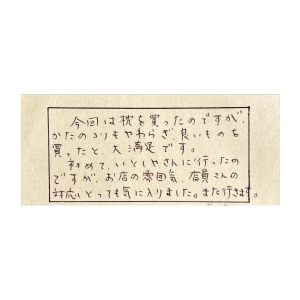 今回は枕を買ったのですが、
かたのコリもやわらぎ、良いものを
買ったと、大満足です。
初めて、いとしやさんに行ったの
ですが、お店の雰囲気、店員さんの
対応いとっても気に入りました。また行きます。